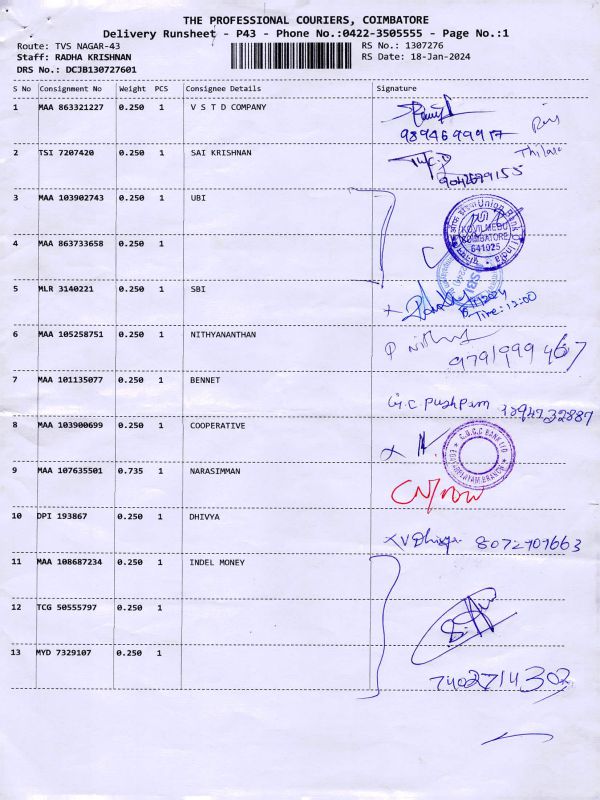 THE PROFESSIONAL COURIERS, COIMBATORE
Delivery Runsheet - P43 - Phone No.:0422-3505555 - Page No.:1
Route: TVS NAGAR-43 RS No.: 1307276
Staff: RADHA KRISHNAN RS Date: 18-Jan-2024
DRS No.: DCJB130727601
S No Consignment No Weight PCS Consignee Details Signature
1 MAA 863321227 0.250 1 V S T D COMPANY
9894699917
2 TSI 7207420 0.250 1 SAI KRISHNAN Thilak
9042699155
3 MAA 103902743 0.250 1 UBI
Union Bank Of India
KOVILMEDU
COIMBATORE
641025
4 MAA 863733658 0.250 1
5 MLR 3140221 0.250 1 SBI
SBI
Time: 12:00
6 MAA 105258751 0.250 1 NITHYANANTHAN
9791999467
7 MAA 101135077 0.250 1 BENNET
G.C pushpam
8 MAA 103900699 0.250 1 COOPERATIVE
BANK LTD
BRANCH
9 MAA 107635501 0.735 1 NARASIMMAN
10 DPI 193867 0.250 1 DHIVYA
V Dhivya 8072101663
11 MAA 108687234 0.250 1 INDEL MONEY
12 TCG 50555797 0.250 1
13 MYD 7329107 0.250 1
7402714302